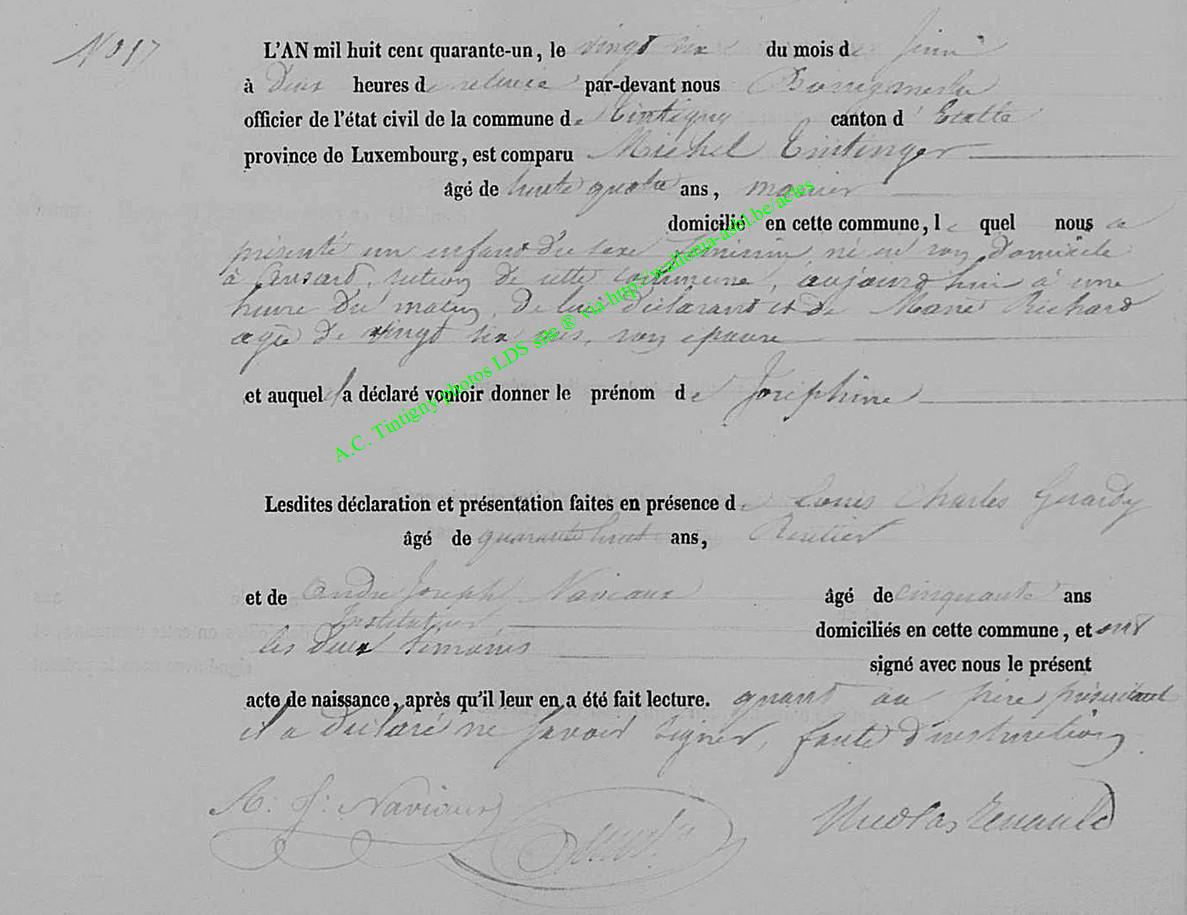 L'AN mil huit cent quarante-un, le vingt six du mois de juin
à Deux heures de relevée par-devant nous Bourgmestre
officier de l'état civil de la commune de Tintigny canton d'Etalle
province de Luxembourg, est comparu Michel Tintinger
âgé de trente quatre ans,
domicilié en cette commune, lequel nous a
présenté un enfant du sexe féminin, né en son domicile
à Ansart, section de cette commune, aujourd'hui à une
heure du matin, de lui déclarant et de Marie richard
agée de vingt six ans, son epouse
et auquel il a déclaré vouloir donner le prénom de Joséphine
Lesdites déclaration et présentation faites en présence de Louis Charles Gerardy
âgé de quarante huit ans, Rentier
et de andré Joseph Naviaux âgé de cinquante ans
Instituteur
domiciliés en cette commune, et ont
les deux témoins
signé avec nous le présent
acte de naissance, après qu'il leur en a été fait lecture. quant au père présentant
il a déclaré ne savoir signer, faute d'instruction
A. J. Naviaux
A.C. Tintigny photos LDS site ® via http://wallonia-asbl.be/actes